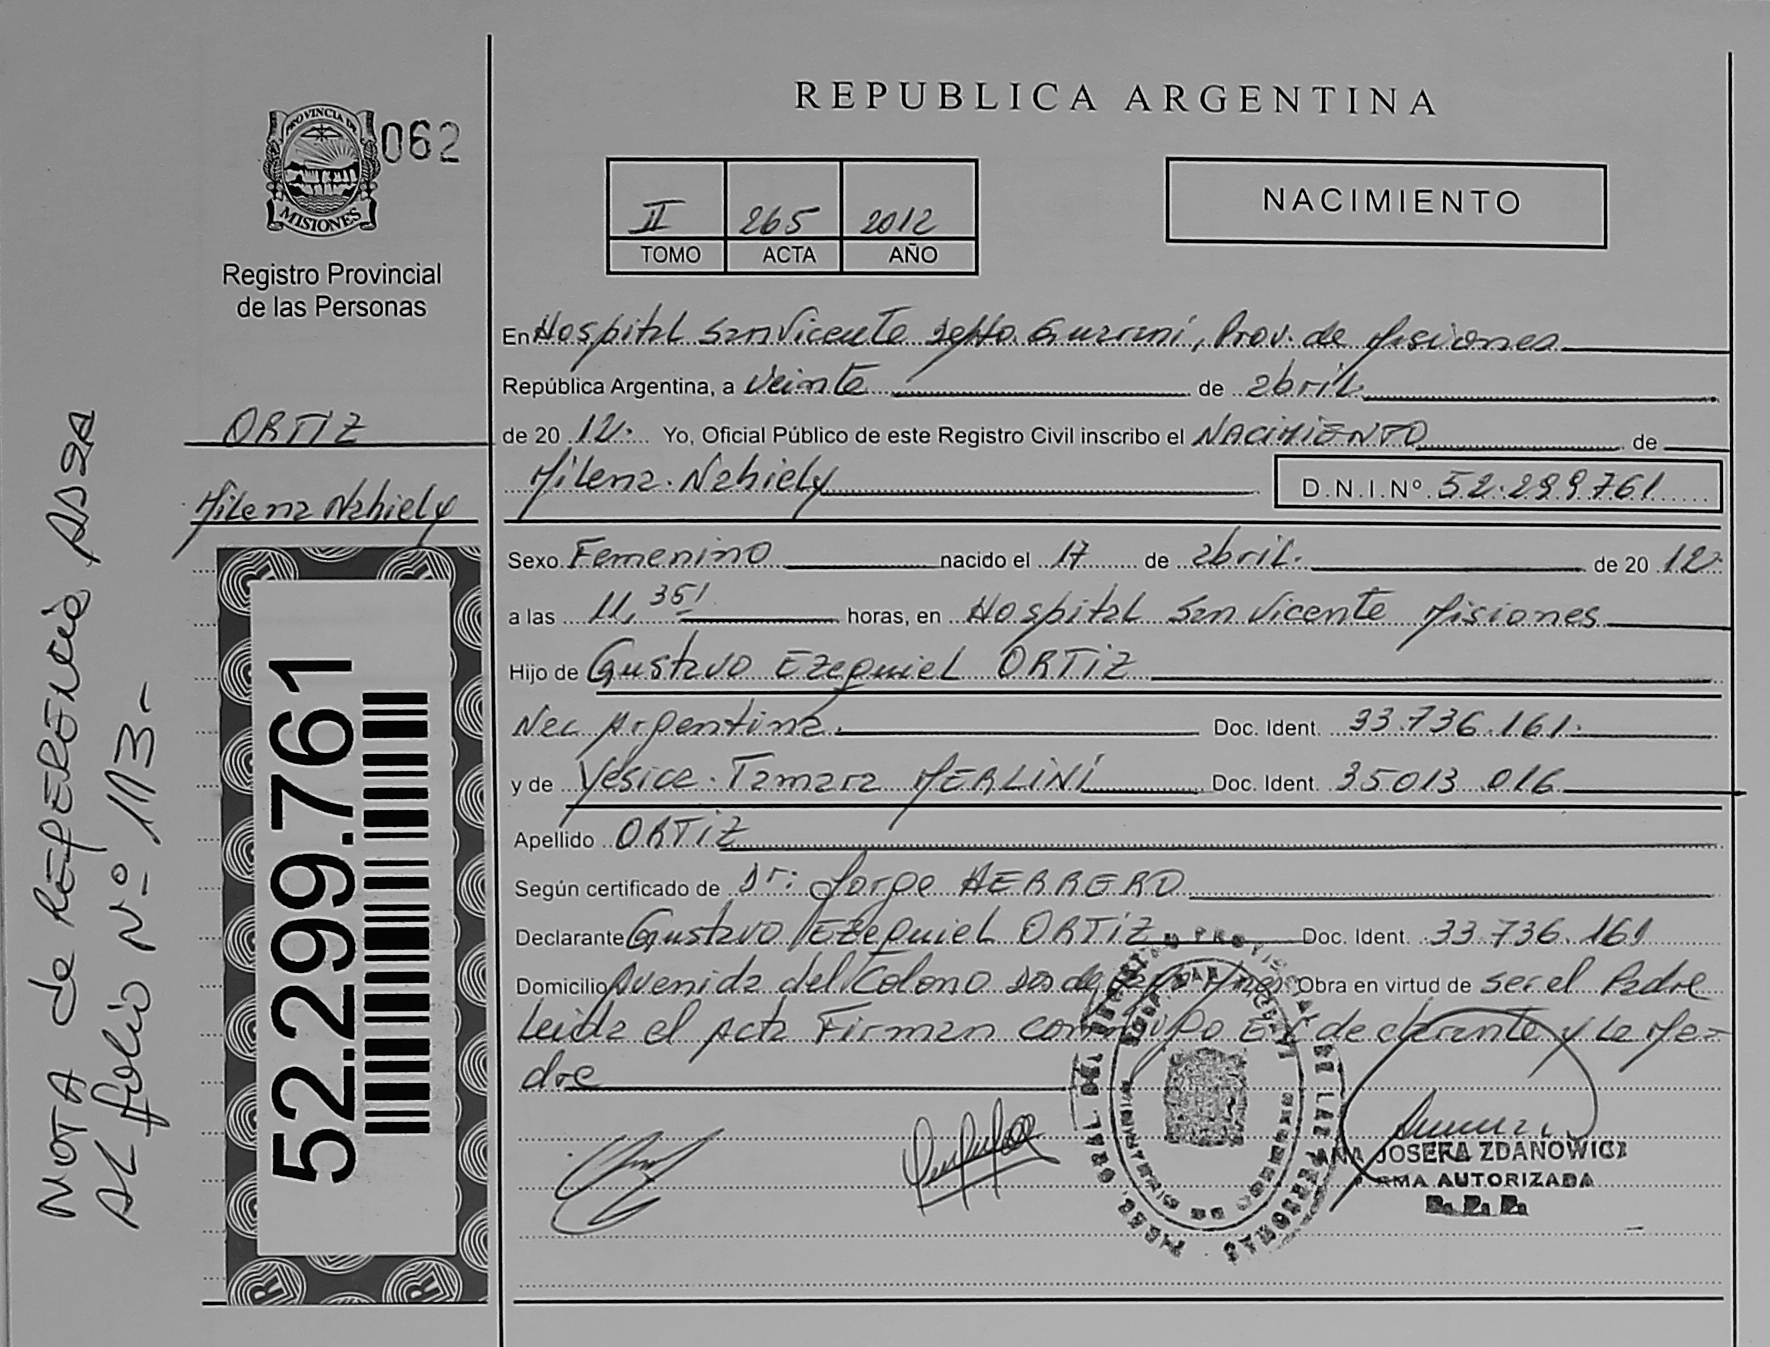 REPUBLICA ARGENTINA
PROVINCIA DE
MISIONES
062
Registro Provincial
de las Personas
II 265 2012
TOMO ACTA AÑO
NACIMIENTO
En Hospital San Vicente Depto. Guarani, Prov. de Misiones
República Argentina, a veinte de abril
de 20 12. Yo, Oficial Público de este Registro Civil inscribo el NACIMIENTO de
Milena Nahiely D.N.I.Nº 52.299.761
ORTIZ
Milena Nahiely
Sexo Femenino nacido el 17 de abril de 20 12
a las 11,35 horas, en Hospital San Vicente Misiones
Hijo de Gustavo Ezequiel ORTIZ
Nac Argentina Doc. Ident. 33.736.161
y de Yesica Tamara MERLINI Doc. Ident. 35013.016
Apellido ORTIZ
Según certificado de Dr: Jorge HERRERO
Declarante Gustavo Ezequiel ORTIZ Doc. Ident. 33.736.161
Domicilio Avenida del Colono Obra en virtud de ser el Padre
Leida el Acta Firman conmigo El declarante y La Ma-
dre
52.299.761
NOTA de REFERENCIA
AL folio Nº 113-
ANA JOSEFA ZDANOWICZ
FIRMA AUTORIZADA
R.P.P.